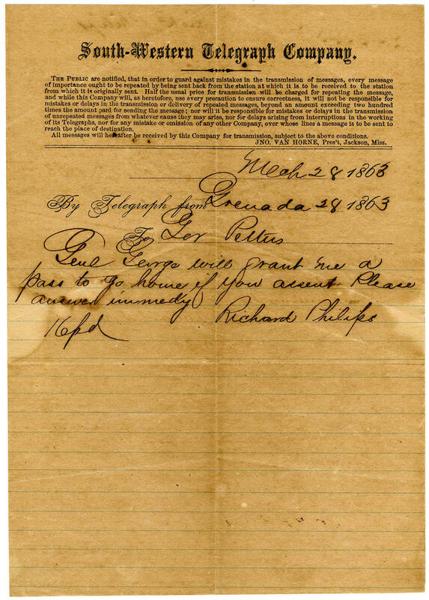 South-Western Telegraph Company.
THE PUBLIC are notified, that in order to guard against mistakes in the transmission of messages, every message
of importance ought to be repeated by being sent back from the station at which it is to be received to the station
from which it is originally sent. Half the usual price for transmission will be charged for repeating the message,
and while this Company will, as heretofore, use every precaution to ensure correctness, it will not be responsible for
mistakes or delays in the transmission or delivery of repeated messages, beyond an amount exceeding two hundred
times the amount paid for sending the message; nor will it be responsible for mistakes or delays in the transmission
of unrepeated messages from whatever cause they may arise, nor for delays arising from interruptions in the working
of its Telegraphs, nor for any mistake or omission of any other Company, over whose lines a message is to be sent to
reach the place of destination.
All messages will hereafter be received by this Company for transmission, subject to the above conditions.
JNO. VAN HORNE, Pres't, Jackson, Miss.
Mch 28 1863
By Telegraph from Grenada 28 1863
To Gov Pettus
Genl George will grant me a
pass to go home if you assent Please
answer immedy
Richard Philips
16 pd